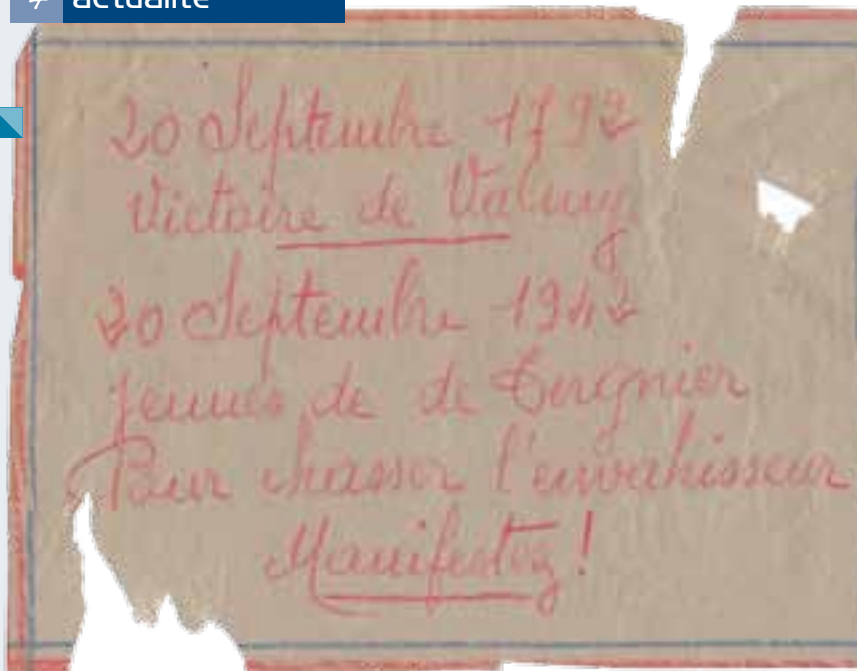 actualité
20 Septembre 1792
Victoire de Valmy
20 Septembre 1942
Jeunes de de Tergnier
Pour chasser l'envahisseur
Manifestez !